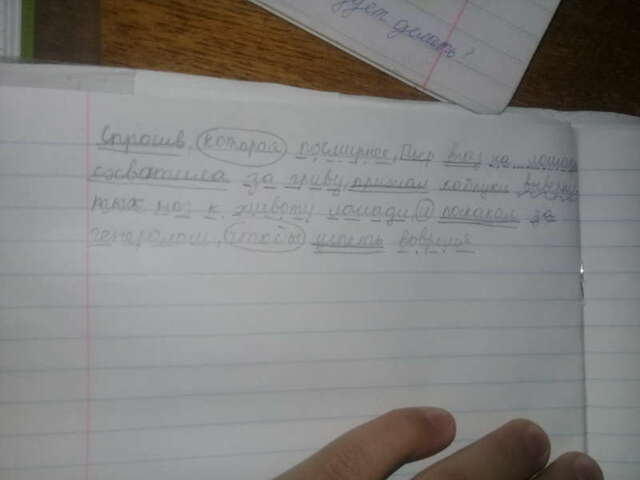 делать?
Спросив, которая посмирнее, Пьер влез на лошадь
схватился за гриву, прижал каблуки выверну
тых ног к животу лошади и поскакал за
генералом, чтобы успеть вовремя